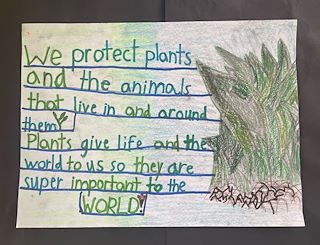 We protect plants
and the animals
that live in and around
them
Plants give life and the
world to us so they are
super important to the
WORLD!